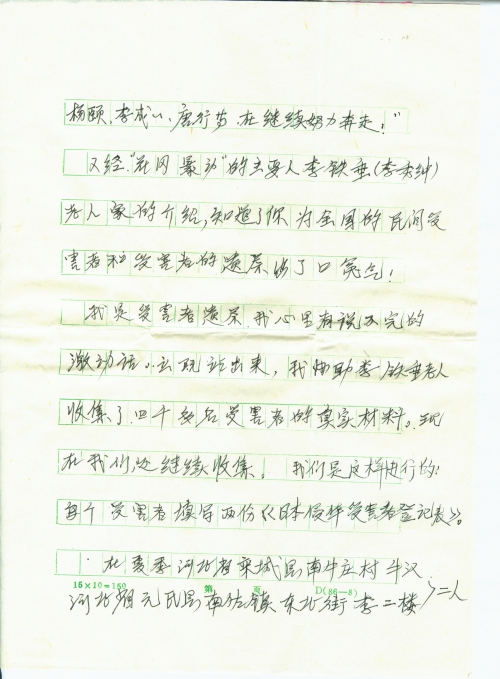 杨颐、李成、唐行步，在继续努力奔走！”
又经“花冈暴动”的主要人李铁垂(李秀绅)
老人家的介绍，知道了你为全国的民间受
害者和受害者的遗属出了口冤气！
我是受害者遗属，我心里有说不完的
激动话。站出来，我协助李铁垂老人
收集了四千多名受害者的真实材料。现
在我们还继续收集。我们是这样进行的：
每个受害者填写两份《日本侵华受害者登记表》。
在委河北省栾城县南牛庄村牛汉
15×10=150 第 页 D(86—8)
河北省元氏县南佐镇东北街李二楼 二人